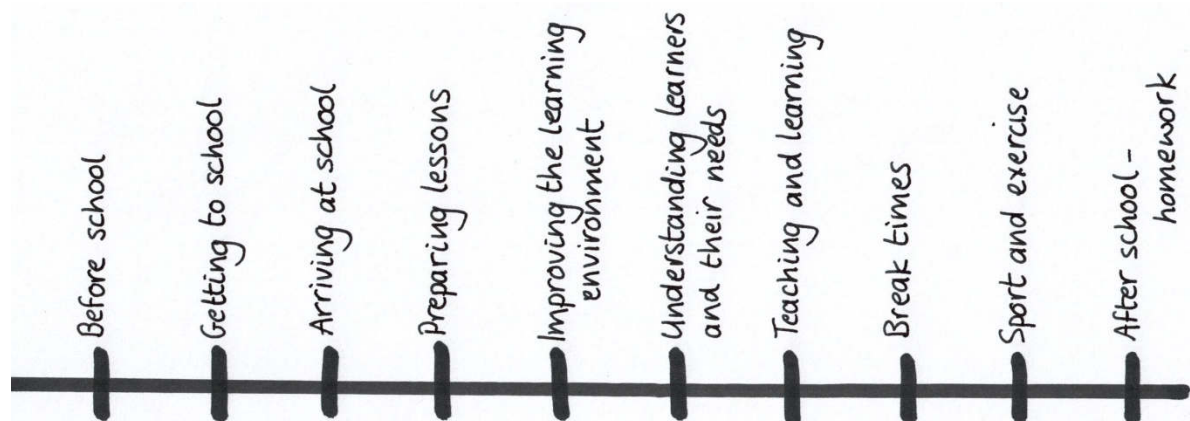 Before school
Getting to school
Arriving at school
Preparing lessons
Improving the learning
environment
Understanding learners
and their needs
Teaching and learning
Break times
Sport and exercise
After school -
homework